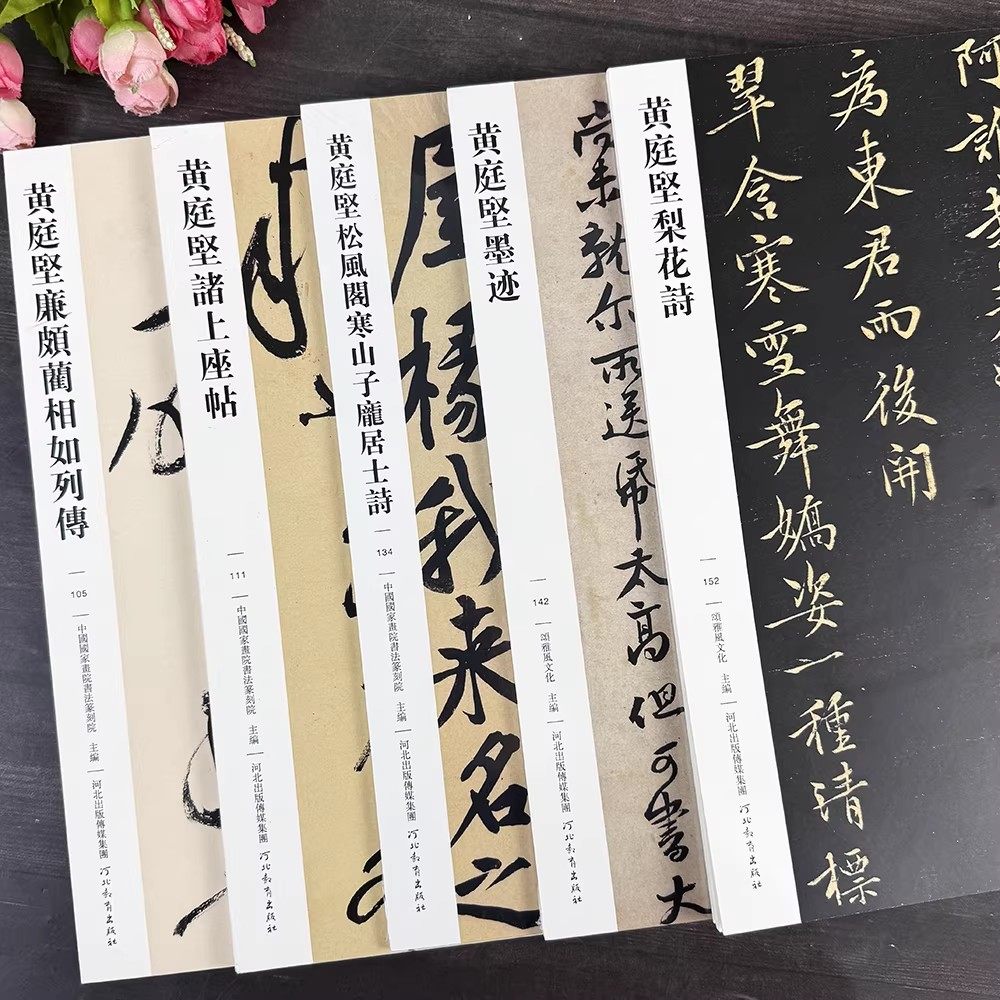 黄庭堅廉頗藺相如列傳
105
中國國家畫院書法篆刻院 主编
河北出版傳媒集團
河北教育出版社
黄庭堅諸上座帖
111
中國國家畫院書法篆刻院 主编
河北出版傳媒集團
河北教育出版社
黄庭堅松風閣寒山子龐居士詩
134
中國國家畫院書法篆刻院 主编
河北出版傳媒集團
河北教育出版社
屋楊我来名之
黄庭堅墨迹
142
頌雅風文化 主编
河北出版傳媒集團
河北教育出版社
嘗未就尔雨送
太高但可書大
黄庭堅梨花詩
152
頌雅風文化 主编
河北出版傳媒集團
河北教育出版社
阿誰
為東君而後開
翠含寒雪舞嬌姿一種清標